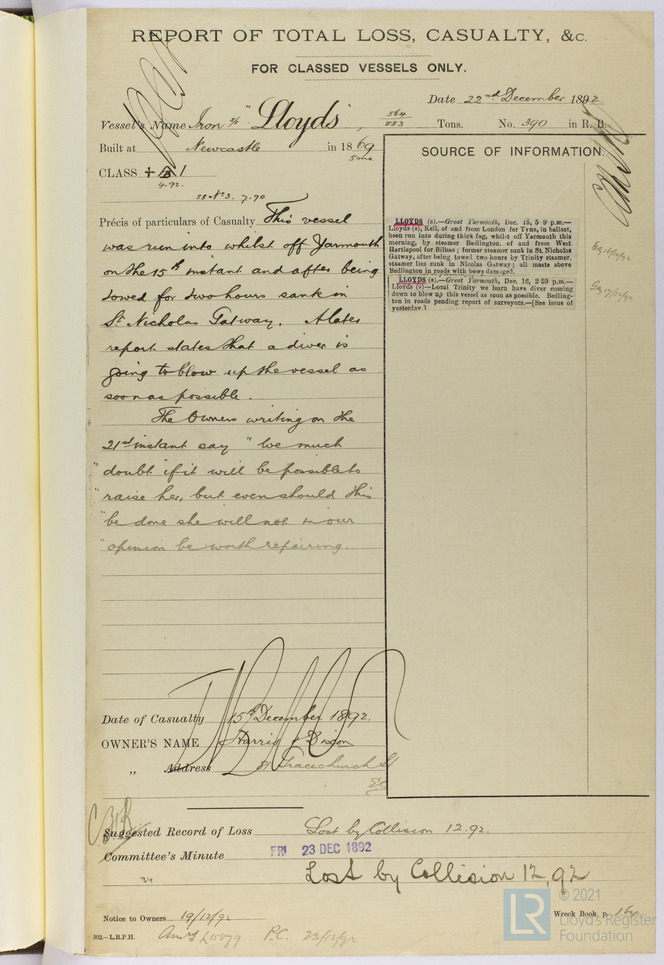 REPORT OF TOTAL LOSS, CASUALTY, &c.
FOR CLASSED VESSELS ONLY.
Date 22nd December 1892.
Vessel's Name Iron s/s "Lloyds", 564/883 Tons. No. 390 in R. B.
Built at Newcastle in 1869
5 mo.
CLASS
4.92.
7.90
SOURCE OF INFORMATION.
Précis of particulars of Casualty This vessel
was run into whilst off Yarmouth
on the 15th instant and after being
towed for two hours sank in
St. Nicholas Gatway. A later
report states that a diver is
going to blow up the vessel as
soon as possible.
The Owners writing on the
21st instant say "We much
"doubt if it will be possible to
"raise her, but even should this
"be done she will not in our
"opinion be worth repairing.
LLOYDS (s).—Great Yarmouth, Dec. 15, 5 9 p.m.—
Lloyds (s), Kell, of and from London for Tyne, in ballast,
been run into during thick fog, whilst off Yarmouth this
morning, by steamer Bedlington, of and from West
Hartlepool for Bilbao; former steamer sunk in St. Nicholas
Gatway, after being towed two hours by Trinity steamer.
steamer lies sunk in Nicolas Gatway; all masts above
Bedlington in roads with bows damaged.
LLOYDS (s).—Great Yarmouth, Dec. 16, 2 59 p.m.—
Lloyds (s)—Local Trinity we learn have diver coming
down to blow up this vessel as soon as possible. Bedling-
ton in roads pending report of surveyors.—[See issue of
yesterday.]
Date of Casualty 15th December 1892.
OWNER'S NAME Harris & Dixon
„ Address Gracechurch St
EC
Suggested Record of Loss Lost by Collision 12.92.
Committee's Minute FRI 23 DEC 1892
34
Lost by Collision 12.92
Notice to Owners 19/12/92
Wreck Book, p.
302.—L.R.P.H. P.C. 22/12/92
© 2021
LR
Lloyd's Register
Foundation